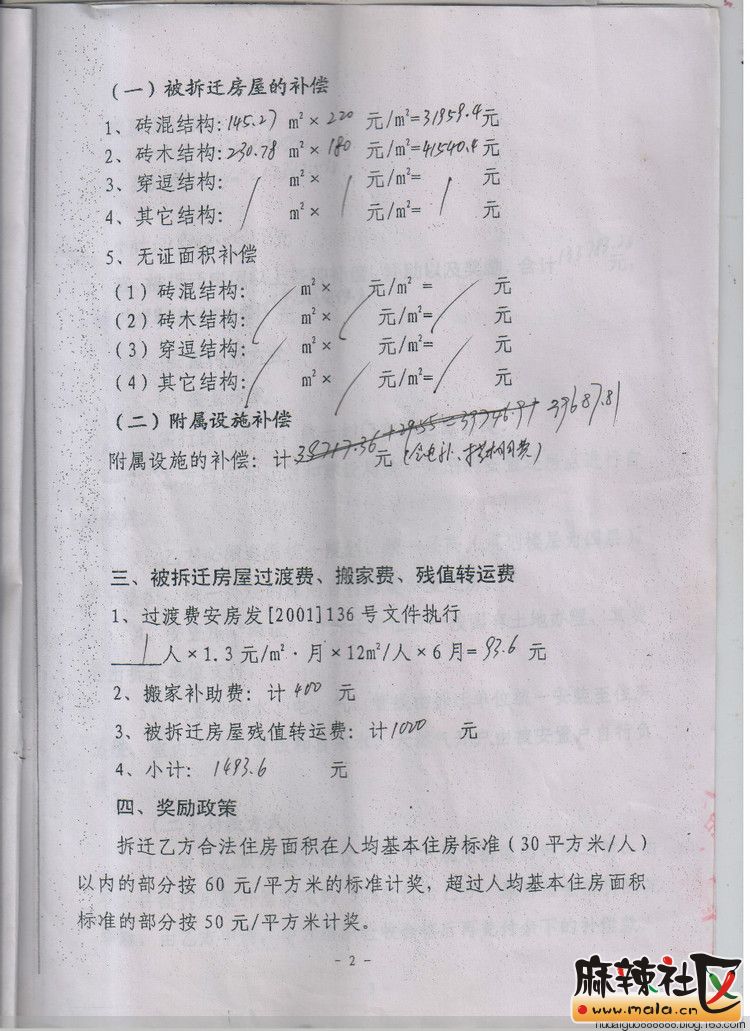 （一）被拆迁房屋的补偿
1、砖混结构：145.27 m²× 220 元/m²=31959.4元
2、砖木结构：230.78 m²× 180 元/m²=41540.4元
3、穿逗结构： / m²× / 元/m²= / 元
4、其它结构： / m²× / 元/m²= / 元
5、无证面积补偿
（1）砖混结构： m²× 元/m² = 元
（2）砖木结构： m²× 元/m²= 元
（3）穿逗结构： m²× 元/m²= 元
（4）其它结构： m²× 元/m²= 元
（二）附属设施补偿 39687.81
附属设施的补偿：计 元
三、被拆迁房屋过渡费、搬家费、残值转运费
1、过渡费安房发[2001]136 号文件执行
1人×1.3 元/m²·月×12m²/人×6 月=93.6 元
2、搬家补助费：计 400 元
3、被拆迁房屋残值转运费：计1000 元
4、小计： 1493.6 元
四、奖励政策
拆迁乙方合法住房面积在人均基本住房标准（30 平方米/人）
以内的部分按 60 元/平方米的标准计奖，超过人均基本住房面积
标准的部分按 50 元/平方米计奖。
- 2 -
麻辣社区
www.mala.cn